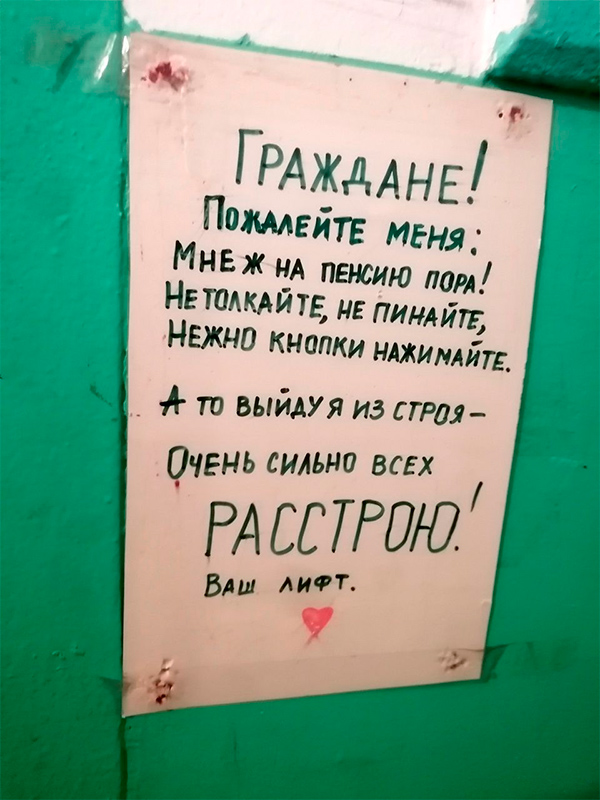 ГРАЖДАНЕ!
ПОЖАЛЕЙТЕ МЕНЯ:
МНЕ Ж НА ПЕНСИЮ ПОРА!
НЕ ТОЛКАЙТЕ, НЕ ПИНАЙТЕ,
НЕЖНО КНОПКИ НАЖИМАЙТЕ.
А ТО ВЫЙДУ Я ИЗ СТРОЯ –
ОЧЕНЬ СИЛЬНО ВСЕХ
РАССТРОЮ!
ВАШ ЛИФТ.